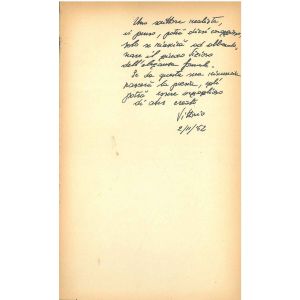 Uno scrittore realista,
io penso, potrà dirsi coraggioso,
solo se riuscirà ad abbando-
nare il piacere
dell'eleganza formale.
Se da questa sua rinuncia
nascerà la poesia, egli
potrà essere orgoglioso
di aver creato
Vittorio
2/11/52